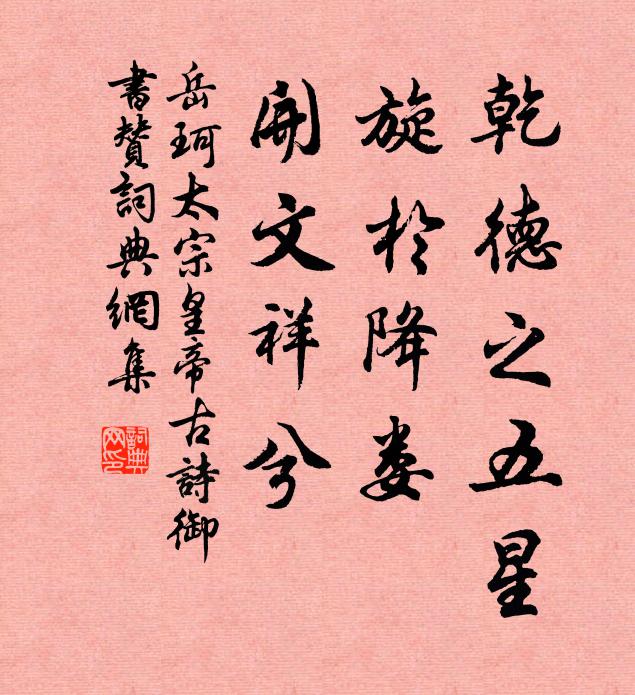 乾德之五星
旋於降娄
開文祥兮
岳珂太宗皇帝古詩御
書贊詞典網集
詞典網印